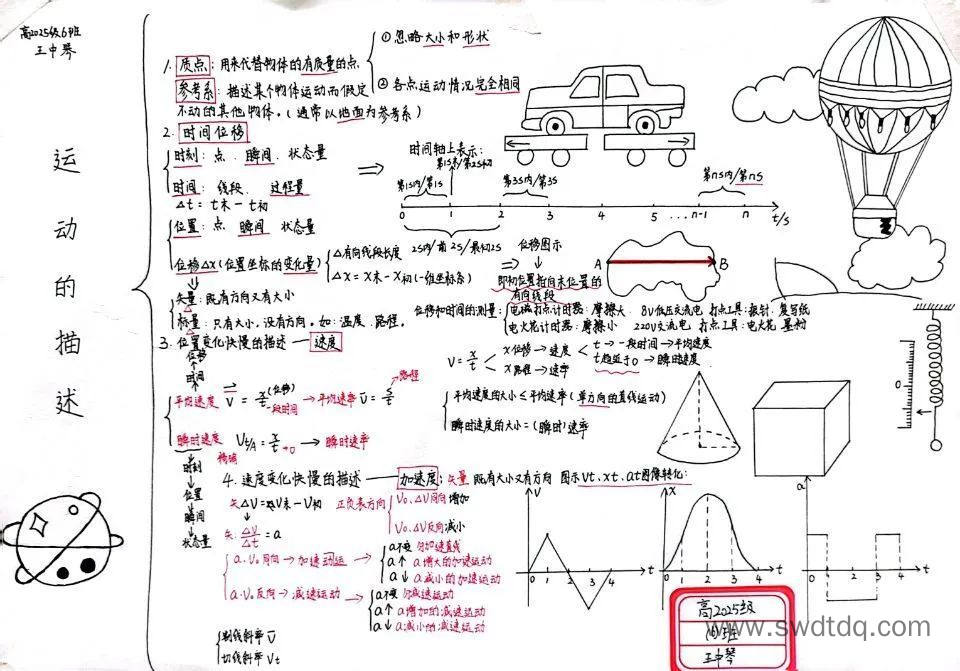 高2025级6班
王中琴
运动的描述
1. 质点：用来代替物体的有质量的点.
① 忽略大小和形状
② 各点运动情况完全相同
参考系：描述某个物体运动而假定
不动的其他物体。（通常以地面为参考系）
2. 时间 位移
时刻：点、瞬间、状态量
时间：线段、过程量
Δt = t末 - t初
时间轴上表示：
第1s末/第2s初
第1s内/第1s
第3s内/第3s
第ns内/第ns
0 1 2 3 4 5 … n-1 n t/s
2s内/前2s/最初2s
位置：点 瞬间 状态量
位移Δx（位置坐标的变化量）
△有向线段长度
Δx = x末 - x初（一维坐标系）
位移图示
A B
即初位置指向末位置的
有向线段
矢量：既有方向又有大小
标量：只有大小，没有方向。如：温度、路程。
位移和时间的测量：
电磁打点计时器：摩擦大 8V低压交流电 打点工具：振针、复写纸
电火花计时器：摩擦小 220V交流电 打点工具：电火花 墨粉
3. 位置变化快慢的描述 — 速度
V = x/t
x位移→速度
x路程→速率
t→一段时间→平均速度
t趋近于0→瞬时速度
位移
时间
平均速度 V = x(位移)/t 一段时间 →平均速率 V = s/t
路程
平均速度的大小≤平均速率（单方向的直线运动）
瞬时速度的大小=(瞬时)速率
瞬时速度 Vt/A = x/t →0 → 瞬时速率
时刻
位置
瞬间
状态量
4. 速度变化快慢的描述 — 加速度：矢量 既有大小又有方向 图示vt、xt、at图像转化：
矢ΔV = 矢V末 - V初 正负表方向
V0、ΔV同向增加
V0、ΔV反向减小
矢. ΔV/Δt = a
a、V0同向→加速运动
a不变 匀加速直线
a↑ a增大的加速运动
a↓ a减小的加速运动
a、V0反向→减速运动
a不变 匀减速运动
a↑ a增加的减速运动
a↓ a减小的减速运动
割线斜率 V
切线斜率 Vt
V
0 1 2 3 4 t
x
0 1 2 3 4 t
a
0 1 2 3 4 t
0
高2025级
王中琴
www.swdtdq.com